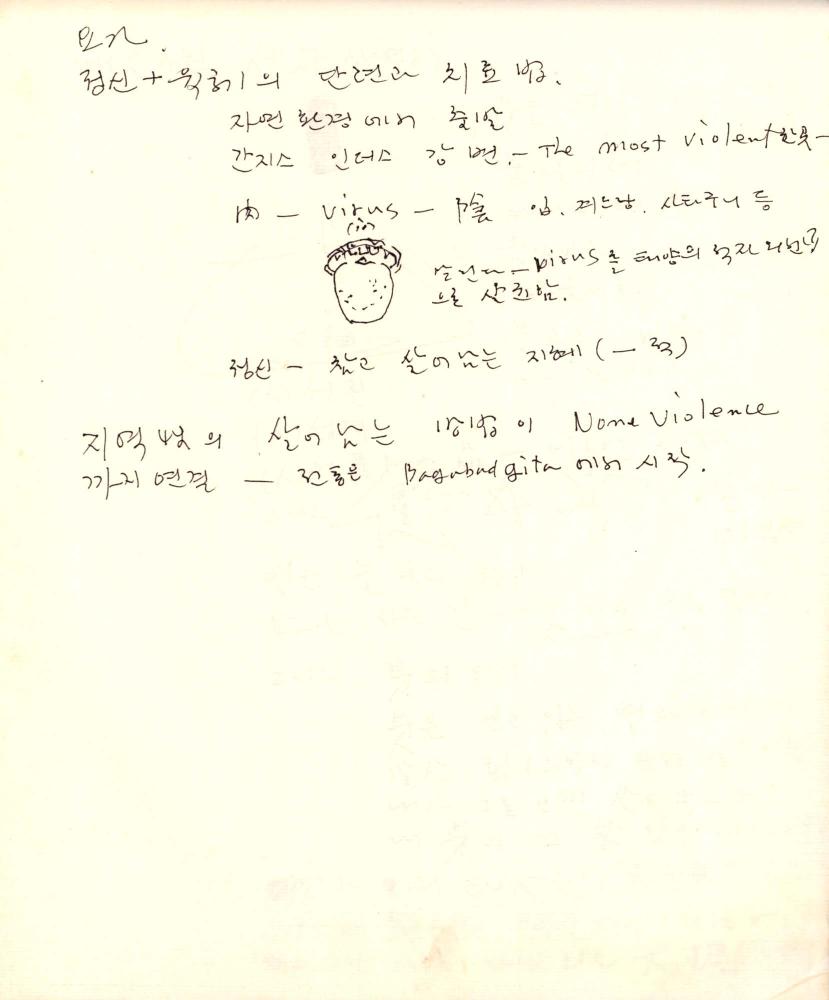 요가.
정신+육체의 단련과 치료법.
자연환경에서 출발
간지스 인더스 강변. - The most violent한 곳 -
肉 - virus - 陰 입. 겨드랑. 사타구니 등
(in)
virus를 태양의 적자외선
으로 살균함.
정신 - 참고 살아남는 지혜 ( - 력)
지역 살아남는 방법이 None Violence
까지 연결 - 전통은 Bagabad gita에서 시작.